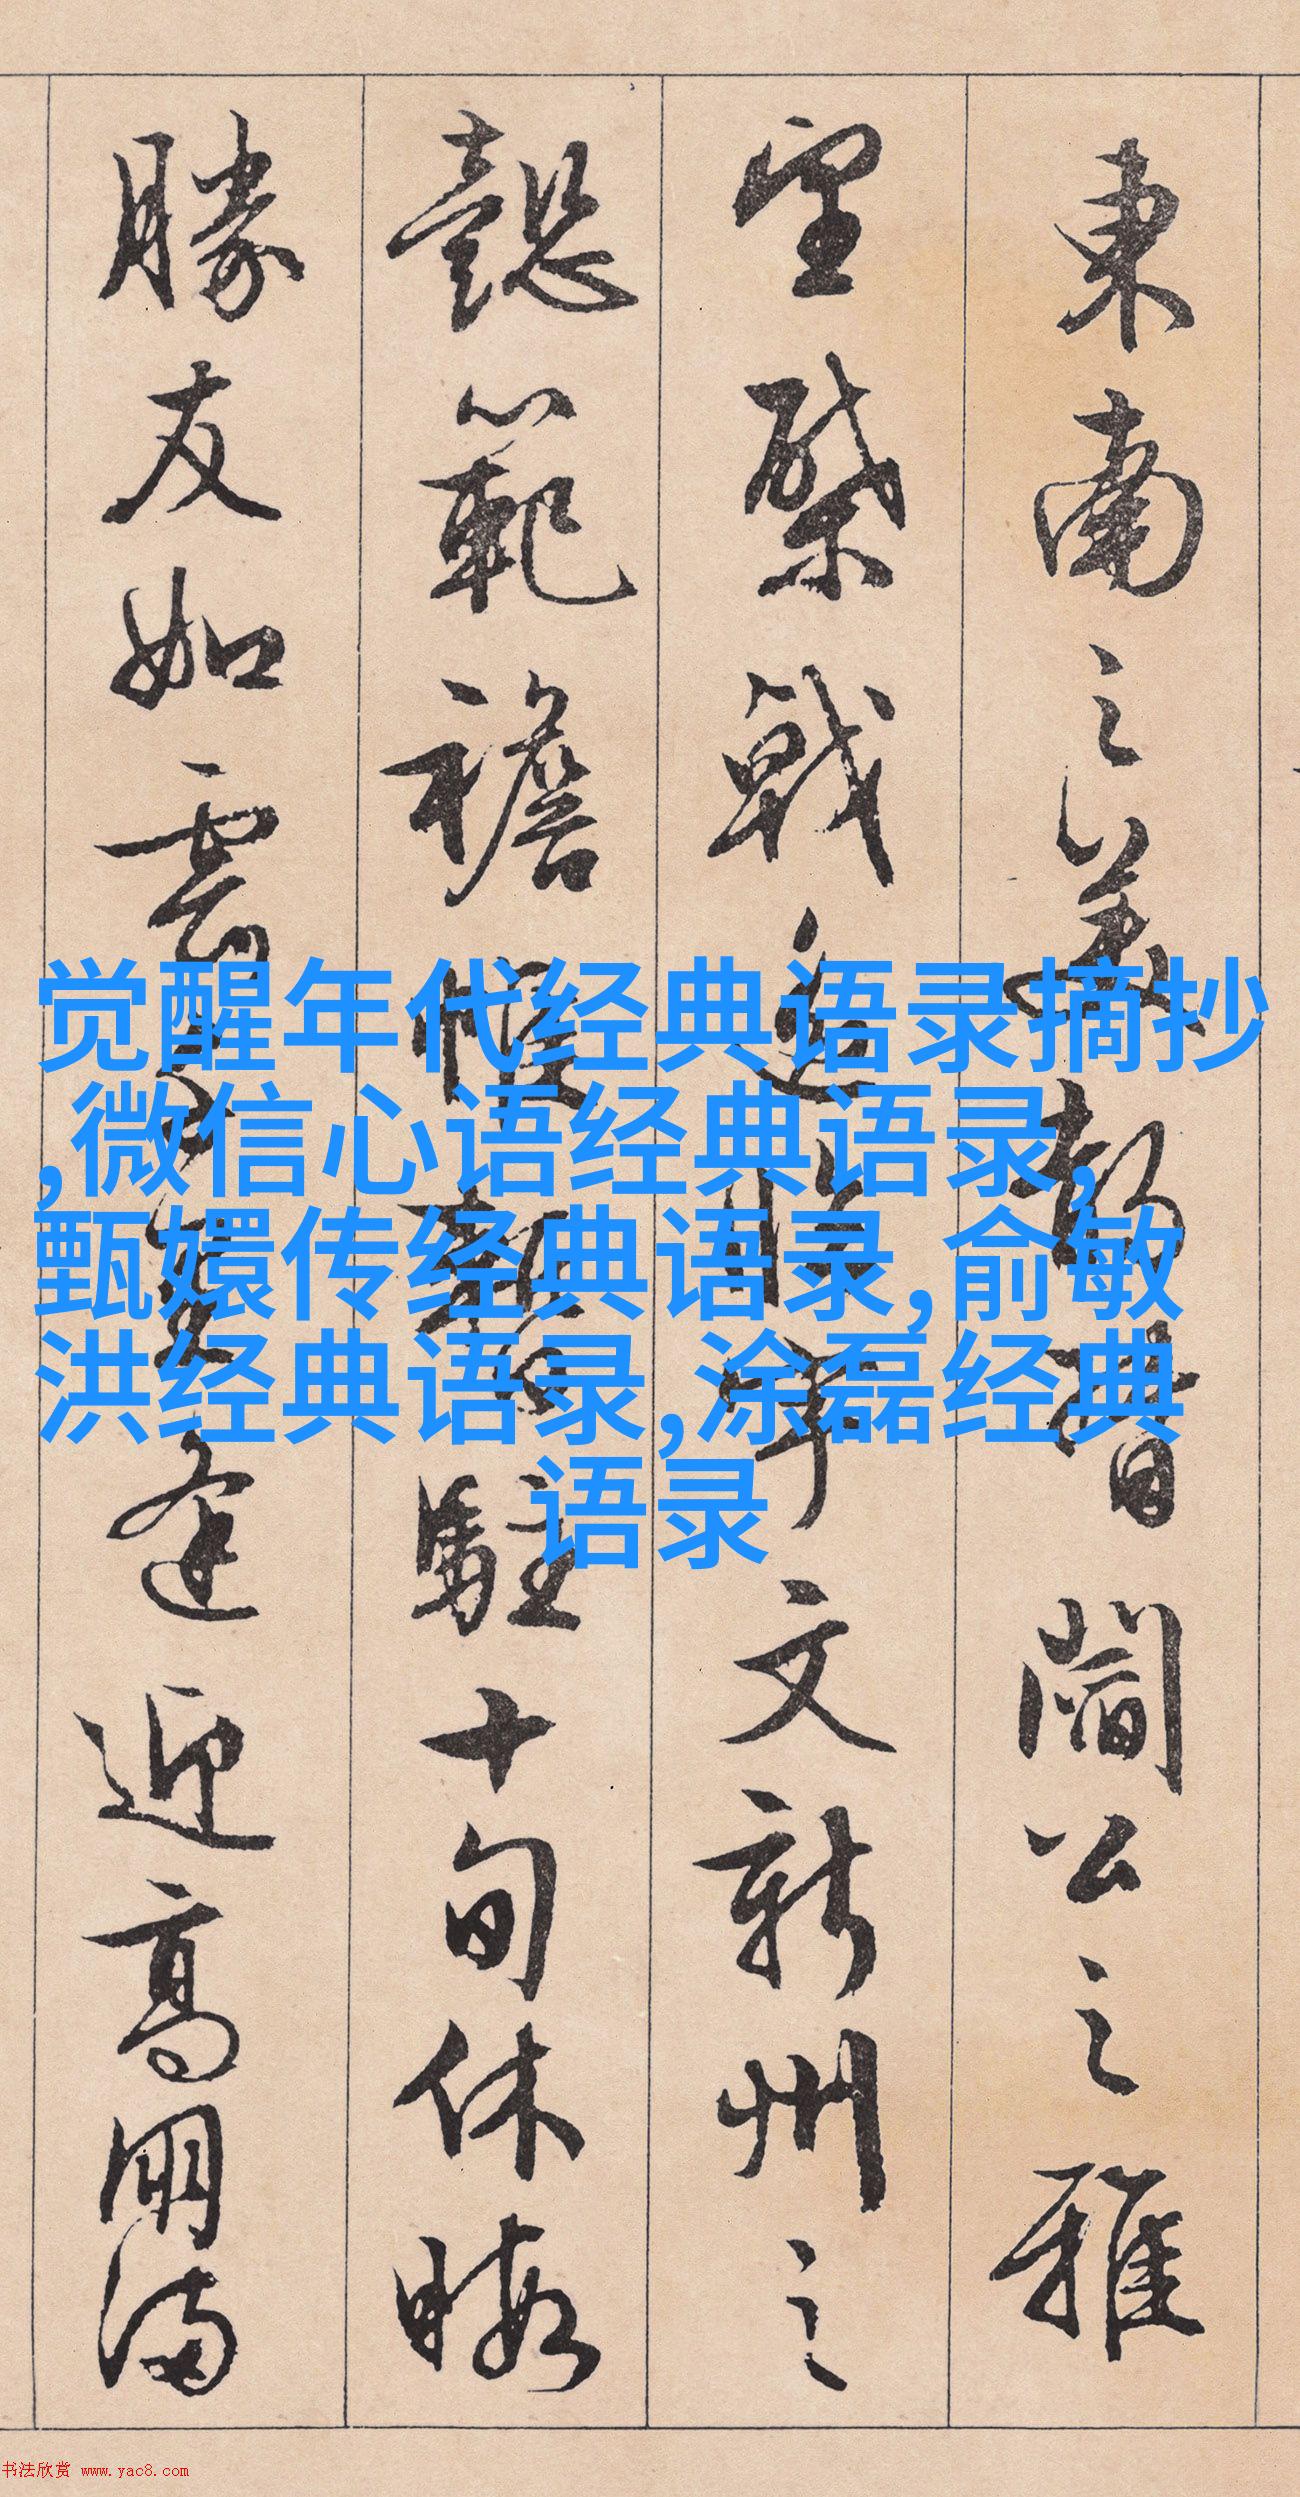 東南之美都督閻公之雅
望棨戟遥臨宇文新州之
懿範襜帷暫駐十旬休暇
勝友如雲千里逢迎高朋滿
觉醒年代经典语录摘抄
,微信心语经典语录,
甄嬛传经典语录,俞敏
洪经典语录,涂磊经典
语录
书法欣赏 www.yac8.com